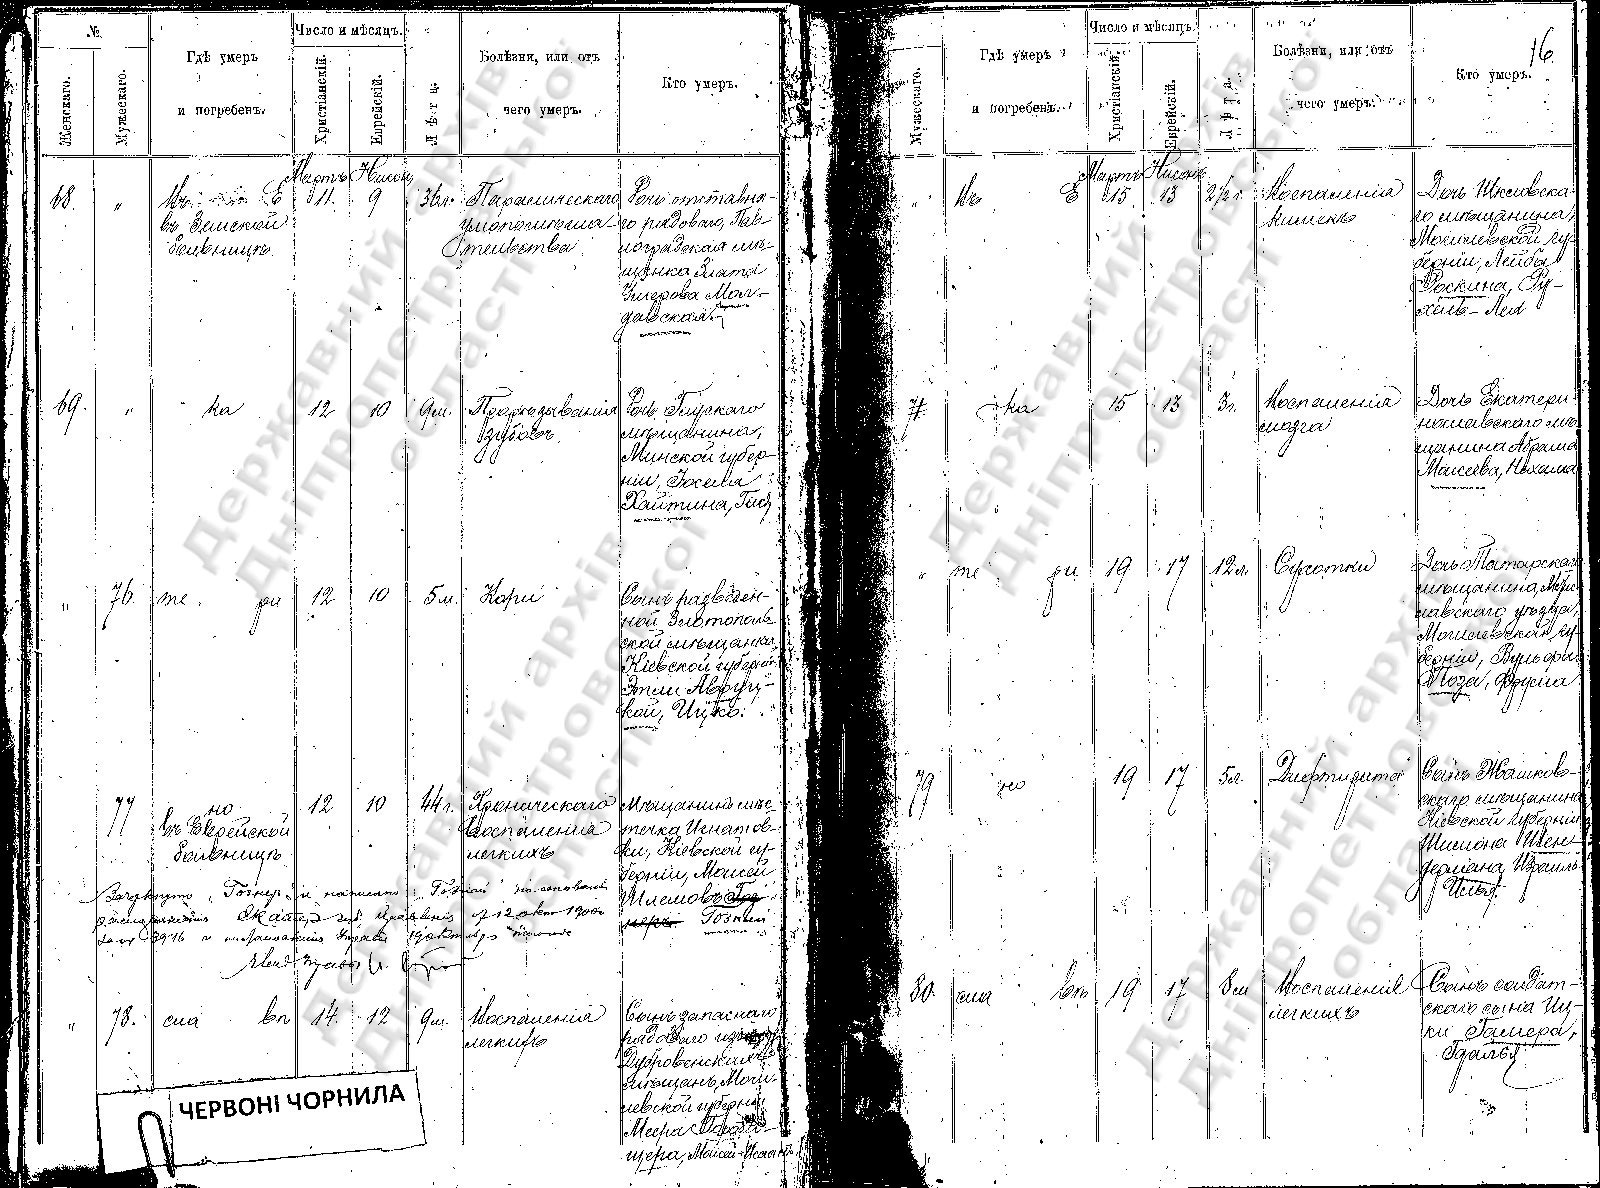 №
Женскаго.
Мужескаго.
Гдѣ умеръ
и погребенъ.
Число и мѣсяцъ.
Христіанскій.
Еврейскій.
Лѣта.
Болѣзни, или отъ
чего умеръ.
Кто умеръ.
Мартъ Нисонъ
68. " Въ Е 11. 9 36 л.
въ Земской
больницѣ
Паралическаго
умопомѣша-
тельства
Дочь отставна-
го рядоваго, Пав-
лоградская мѣ-
щанка Злата
Умерова Мол-
давская.
69. " ка 12 10 9 м.
Прорѣзыванія
зубовъ
Дочь Глускаго
мѣщанина,
Минской губер-
ніи, Іоселя
Хайтина,
" 76. те ри 12 10 5 м. Кори
Сынъ разведен-
ной Златополь-
ской мѣщанки,
Кіевской губерніи
Этли Авруц-
кой, Ицко.
77 но 12 10 44 г.
въ Еврейской
больницѣ
Хроническаго
воспаленія
легкихъ
Мѣщанинъ мѣс-
течка Игнатов-
ки, Кіевской гу-
берніи, Моисей
Шлемовъ
Зачеркнуто и написано
" 78. сла вп 14. 12 9 м.
Воспаленія
легкихъ
Сынъ запаснаго
рядоваго изъ
Дубровенскихъ
мѣщанъ, Моги-
левской губерніи
Меера
ЧЕРВОНІ ЧОРНИЛА
16
Мужескаго.
Гдѣ умеръ
и погребенъ.
Число и мѣсяцъ.
Христіанскій.
Еврейскій.
Лѣта.
Болѣзни, или отъ
чего умеръ.
Кто умеръ.
Мартъ Нисонъ
" Въ Е 15 13 2½ г.
Воспаленія
кишекъ
Дочь Шкловска-
го мѣщанина,
Могилевской гу-
берніи, Лейбы
Роскина, Ру-
хель-Лея
ка 15 13 3 г.
Воспаленія
мозга
Дочь Екатери-
нославскаго мѣ-
щанина Абрама
Моисеева, Нехама
" те ри 19 17 12 л. Сухотки
Дочь Татарскаго
мѣщанина,
славскаго уѣзда,
Могилевской гу-
берніи, Вульфа
Фрума
79 но 19 17 5 л. Дифтерита
Сынъ Жашков-
скаго мѣщанина
Кіевской губерніи
Шимона
Израиль
80. сла вп 19 17 8 м
Воспаленіе
легкихъ
Сынъ солдат-
скаго сына Иц-
ки Гамера,
Гдалья
Державний архів
Дніпропетровської
області